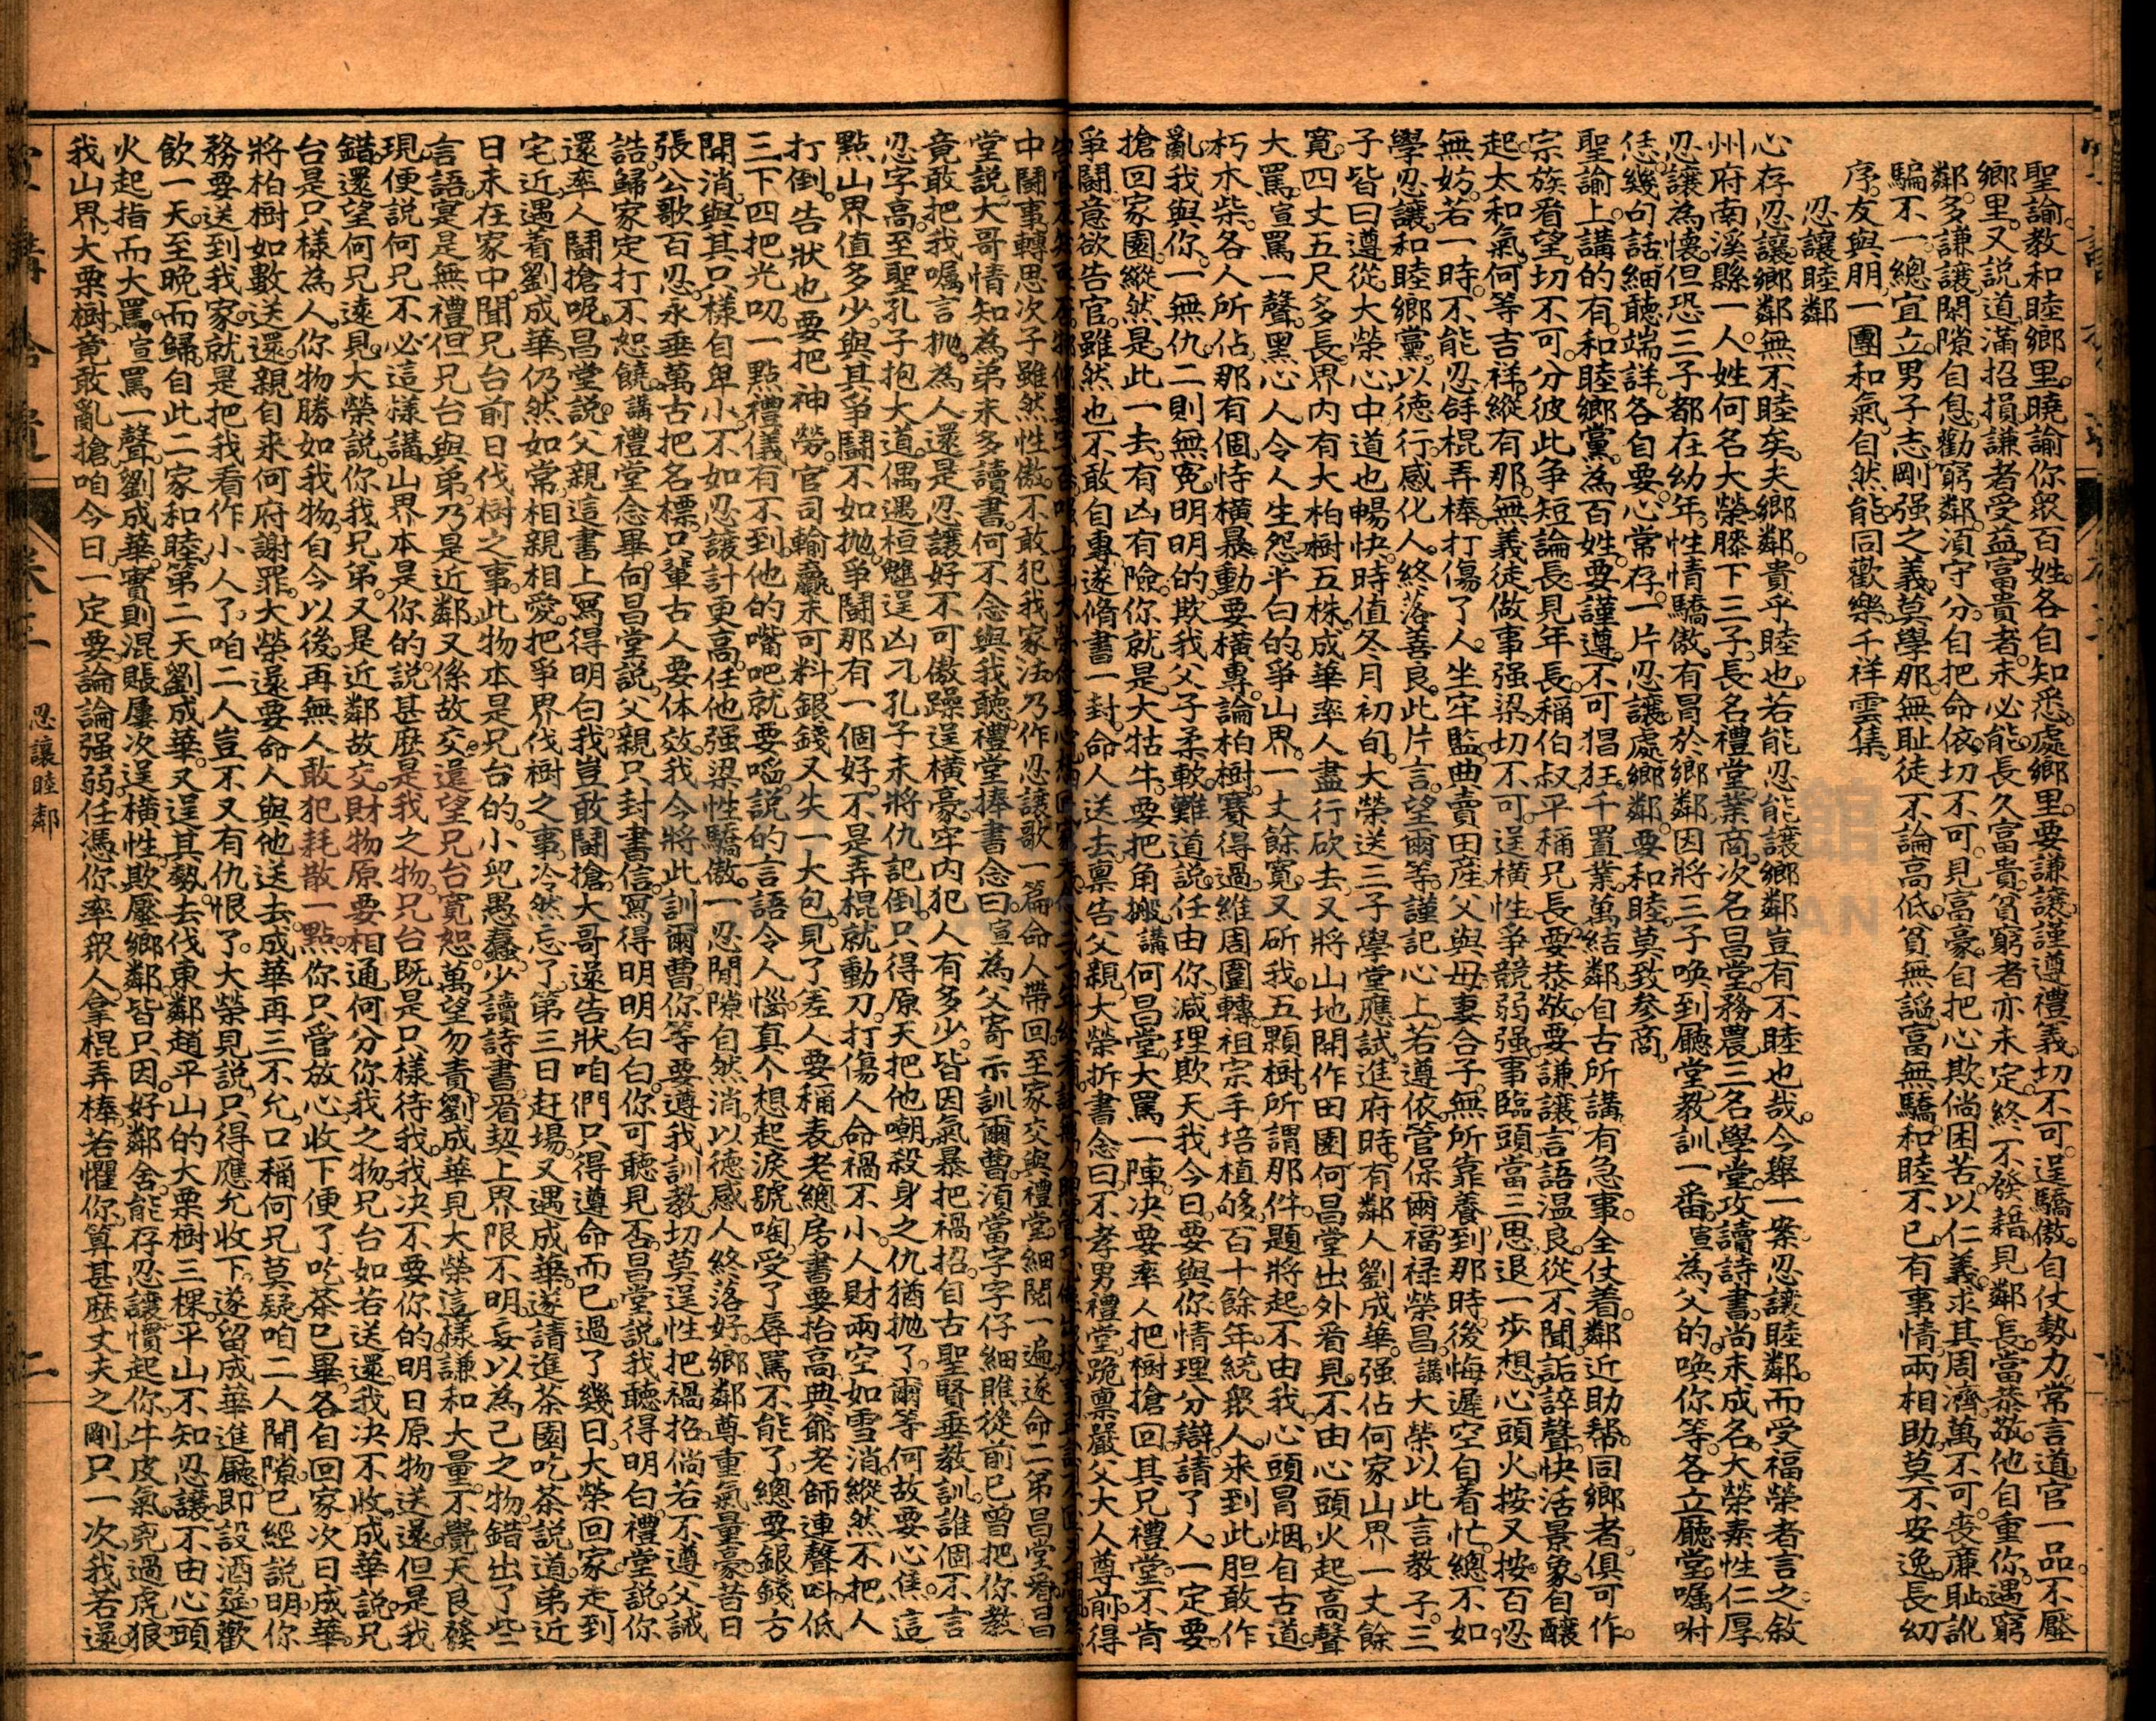 聖諭。教和睦鄉里。曉諭你眾百姓。各自知悉。處鄉里。要謙讓。謹遵禮義。切不可。逞驕傲。自仗勢力。常言道。官一品。不壓
鄉里。又說道。滿招損。謙者受益。富貴者。未必能。長久富貴。貧窮者。亦未定。終不發籍。見鄰長。當恭敬。他自重你。遇窮
鄰。多謙讓。閑隙自息。勸窮鄰。須守分。自把命依。切不可。見高豪。自把心欺。倘困苦。以仁義。求其周濟。萬不可。喪廉恥。訛
騙不一。總宜立。男子志。剛强之義。莫學那。無耻徒。不論高低。貧無謟。富無驕。和睦不已。有事情。兩相助。莫不安逸。長幼
序。友與朋。一團和氣。自然能。同歡樂。千祥雲集。
忍讓睦鄰
心存忍讓鄉鄰。無不睦矣。夫鄉鄰。貴乎睦也。若能忍。能讓。鄉鄰豈有不睦也哉。今舉一案。忍讓睦鄰。而受福榮者言之。敘
州府南溪縣一人。姓何名大榮。膝下三子。長名禮堂。業商。次名昌堂。務農。三名學堂。攻讀詩書。尚未成名。大榮素性仁厚。
忍讓為懷。但恐三子都在幼年。性情驕傲。有冒於鄉鄰。因將三子喚到廳堂。教訓一番。宣為父的。喚你等。各立廳堂。囑咐
恁。幾句話。細聽端詳。各自要。心常存。一片忍讓。處鄉鄰。要和睦。莫致參商。
聖諭上。講的有。和睦鄉黨。為百姓。要謹遵。不可猖狂。千置業。萬結鄰。自古所講。有急事。全仗着。鄰近助幫。同鄉者。俱可作。
宗族看望。切不可。分彼此。争短論長。見年長。稱伯叔。平稱兄長。要恭敬。要謙讓。言語温良。從不聞。詬誶聲。快活景象。自釀
起。太和氣。何等吉祥。縱有那。無義徒。做事强梁。切不可。逞橫性。爭競弱强。事臨頭。當三思。退一步想。心頭火。按又按。百忍
無妨。若一時。不能忍。舒棍弄棒。打傷了人。坐牢監。典賣田産。父與母。妻合子。無所靠養。到那時。後悔遲。空自着忙。總不如
學忍讓。和睦鄉黨。以德行。感化人。終落善良。此片言。望爾等。謹記心上。若遵依。管保爾。福禄榮昌。講大榮以此言教子。三
子皆曰遵從。大榮心中道也暢快。時值冬月初旬。大榮送三子學堂應試。進府時。有鄰人劉成華。强佔何家山界一丈餘
寬。四丈五尺多長。界内有大柏樹五株。成華率人盡行砍去。又將山地開作田園。何昌堂出外看見。不由心頭火起。高聲
大罵。宣罵一聲。黑心人。令人生怨。半白的。爭山界。一丈餘寬。又斫我。五顆樹。所謂那件。題將起。不由我。心頭冒烟。自古道。
朽木柴。各人所佔。那有個。恃橫暴。動要橫專。論柏樹。賽得過。維周圍轉。祖宗手。培植够。百十餘年。統眾人。來到此。胆敢作
亂。我與你。一無仇。二則無寃。明明的。欺我父子柔軟。難道説。任由你。滅理欺天。我今日。要與你。情理分辯。請了人。一定要。
搶回家園。縱然是。此一去。有凶有險。你就是。大牯牛。要把角搬。講何昌堂。大罵一陣。决要率人把樹搶回。其兄禮堂。不肯
爭鬪。意欲告官。雖然也不敢自專。遂脩書一封。命人送去。禀告父親。大榮拆書念曰。不孝男禮堂。跪禀嚴父大人尊前。得
中鬪事轉思。次子雖然性傲。不敢犯我家法。乃作忍讓歌一篇。命人帶回至家。交與禮堂。細閱一遍。遂命二弟昌堂看。昌
堂説。大哥情知為弟未多讀書。何不念與我聽。禮堂捧書念曰。宣為父寄示訓爾曹。須當字字仔細瞧。從前已曾把你教。
竟敢把我囑言抛。為人還是忍讓好。不可傲躁逞橫豪。牢内犯人有多少。皆因氣暴把禍招。自古聖賢垂教訓。誰個不言
忍字高。至聖孔子抱大道。偶遇桓魋逞凶刁。孔子未將仇記倒。只得原天把他嘲。殺身之仇猶抛了。爾等何故要心焦。這
點山界值多少。與其爭鬪不如抛。爭鬪那有一個好。不是弄棍就動刀。打傷人命禍不小。人財兩空如雪消。縱然不把人
打倒。告狀也要把神勞。官司輸贏未可料。銀錢又失一大包。見了差人要稱表。老總房書要抬高。典爺老師連聲叫。低
三下四把光叨。一點禮儀有不到。他的嘴吧就要嗂。説的言語令人惱。真个想起淚號啕。受了辱罵不能了。總要銀錢方
開消。與其只樣自卑小。不如忍讓計更高。任他强梁性驕傲。一忍閒隙自然消。以德感人終落好。鄉鄰尊重氣量豪。昔日
張公歌百忍。永垂萬古把名標。只輩古人要体效。我今將此訓爾曹。你等要遵我訓教。切莫逞性把禍招。倘若不遵父誡
誥。歸家定打不恕饒。講禮堂念畢。向昌堂説。父親只封書信。寫得明明白白。你可聽見否。昌堂説。我聽得明白。禮堂説。你
還率人鬪搶呢。昌堂説。父親這書上寫得明白。我豈敢鬪搶。大哥還告狀。咱們只得遵命而已。過了幾日。大榮回家。走到
宅近。遇着劉成華。仍然如常。相親相愛。把爭界伐樹之事。冷然忘了。第三日赶場。又遇成華。遂請進茶園吃茶。説道。弟近
日未在家中。聞兄台前日伐樹之事。此物本是兄台的。小兒愚蠢。少讀詩書。看契上界限不明。妄以為己之物。錯出了些
言語。寔是無禮。但兄台與弟。乃是近鄰。又係故交。還望兄台寛恕。萬望勿責。劉成華見大榮這樣謙和大量。不覺天良發
現。便説何兄不必這樣講。山界本是你的。説甚麽是我之物。兄台既是只樣待我。我决不要你的。明日原物送還。但是我
錯。還望何兄遠見。大榮説。你我兄弟。又是近鄰故交。財物原要相通。何分你我之物。兄台如若送還。我决不收。成華説。兄
台是只樣為人。你物勝如我物。自今以後。再無人敢犯耗散一點。你只管放心收下便了。吃茶已畢。各自回家。次日成華。
將柏樹如數送還。親自來何府謝罪。大榮還要命人與他送去。成華再三不允。口稱何兄莫疑。咱二人閒隙。已經説明。你
務要送到我家。就是把我看作小人了。咱二人豈不又有仇恨了。大榮見説。只得應允收下。遂留成華進廳。即設酒筵。歡
飲一天。至晚而歸。自此二家和睦。第二天。劉成華。又逞其勢。去伐東鄰趙平山的大粟樹三棵。平山不知忍讓。不由心頭
火起。指而大罵。宣罵一聲。劉成華。實則混賬。屢次逞橫性。欺壓鄉鄰。皆只因。好鄰舍。能存忍讓。慣起你。牛皮氣。兇過虎狼。
我山界。大粟樹。竟敢亂搶。咱今日。一定要。論論强弱。任憑你。率眾人。拿棍弄棒。若懼你。算甚麽。丈夫之剛。只一次。我若還
宣講拾遺
卷三
忍讓睦鄰
二